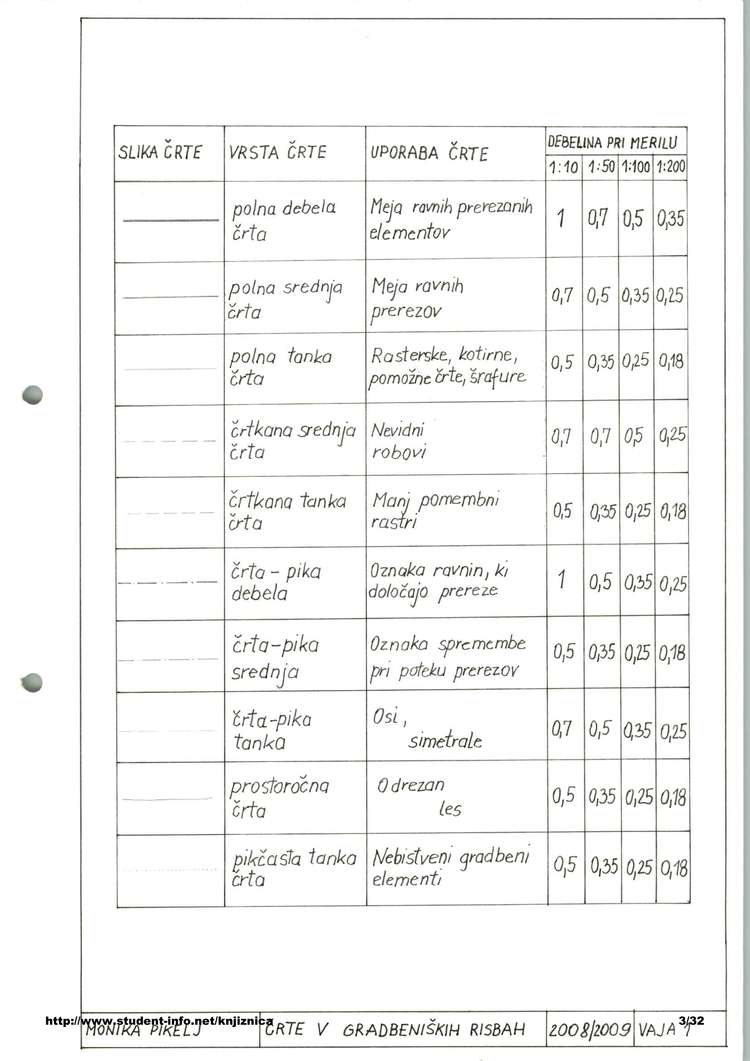 SLIKA ČRTE VRSTA ČRTE UPORABA ČRTE DEBELINA PRI MERILU
1:10 1:50 1:100 1:200
polna debela Meja ravnih prerezanih
črta elementov 1 0,7 0,5 0,35
polna srednja Meja ravnih
črta prerezov 0,7 0,5 0,35 0,25
polna tanka Rasterske, kotirne,
črta pomožne črte, šrafure 0,5 0,35 0,25 0,18
črtkana srednja Nevidni
črta robovi 0,7 0,7 0,5 0,25
črtkana tanka Manj pomembni
črta rastri 0,5 0,35 0,25 0,18
črta - pika Oznaka ravnin, ki
debela določajo prereze 1 0,5 0,35 0,25
črta-pika Oznaka spremembe
srednja pri poteku prerezov 0,5 0,35 0,25 0,18
črta-pika Osi,
tanka simetrale 0,7 0,5 0,35 0,25
prostoročna Odrezan
črta les 0,5 0,35 0,25 0,18
pikčasta tanka Nebistveni gradbeni
črta elementi 0,5 0,35 0,25 0,18
http://www.student-info.net/knjiznica 3/32
MONIKA PIKELJ ČRTE V GRADBENIŠKIH RISBAH 2008/2009 VAJA 1